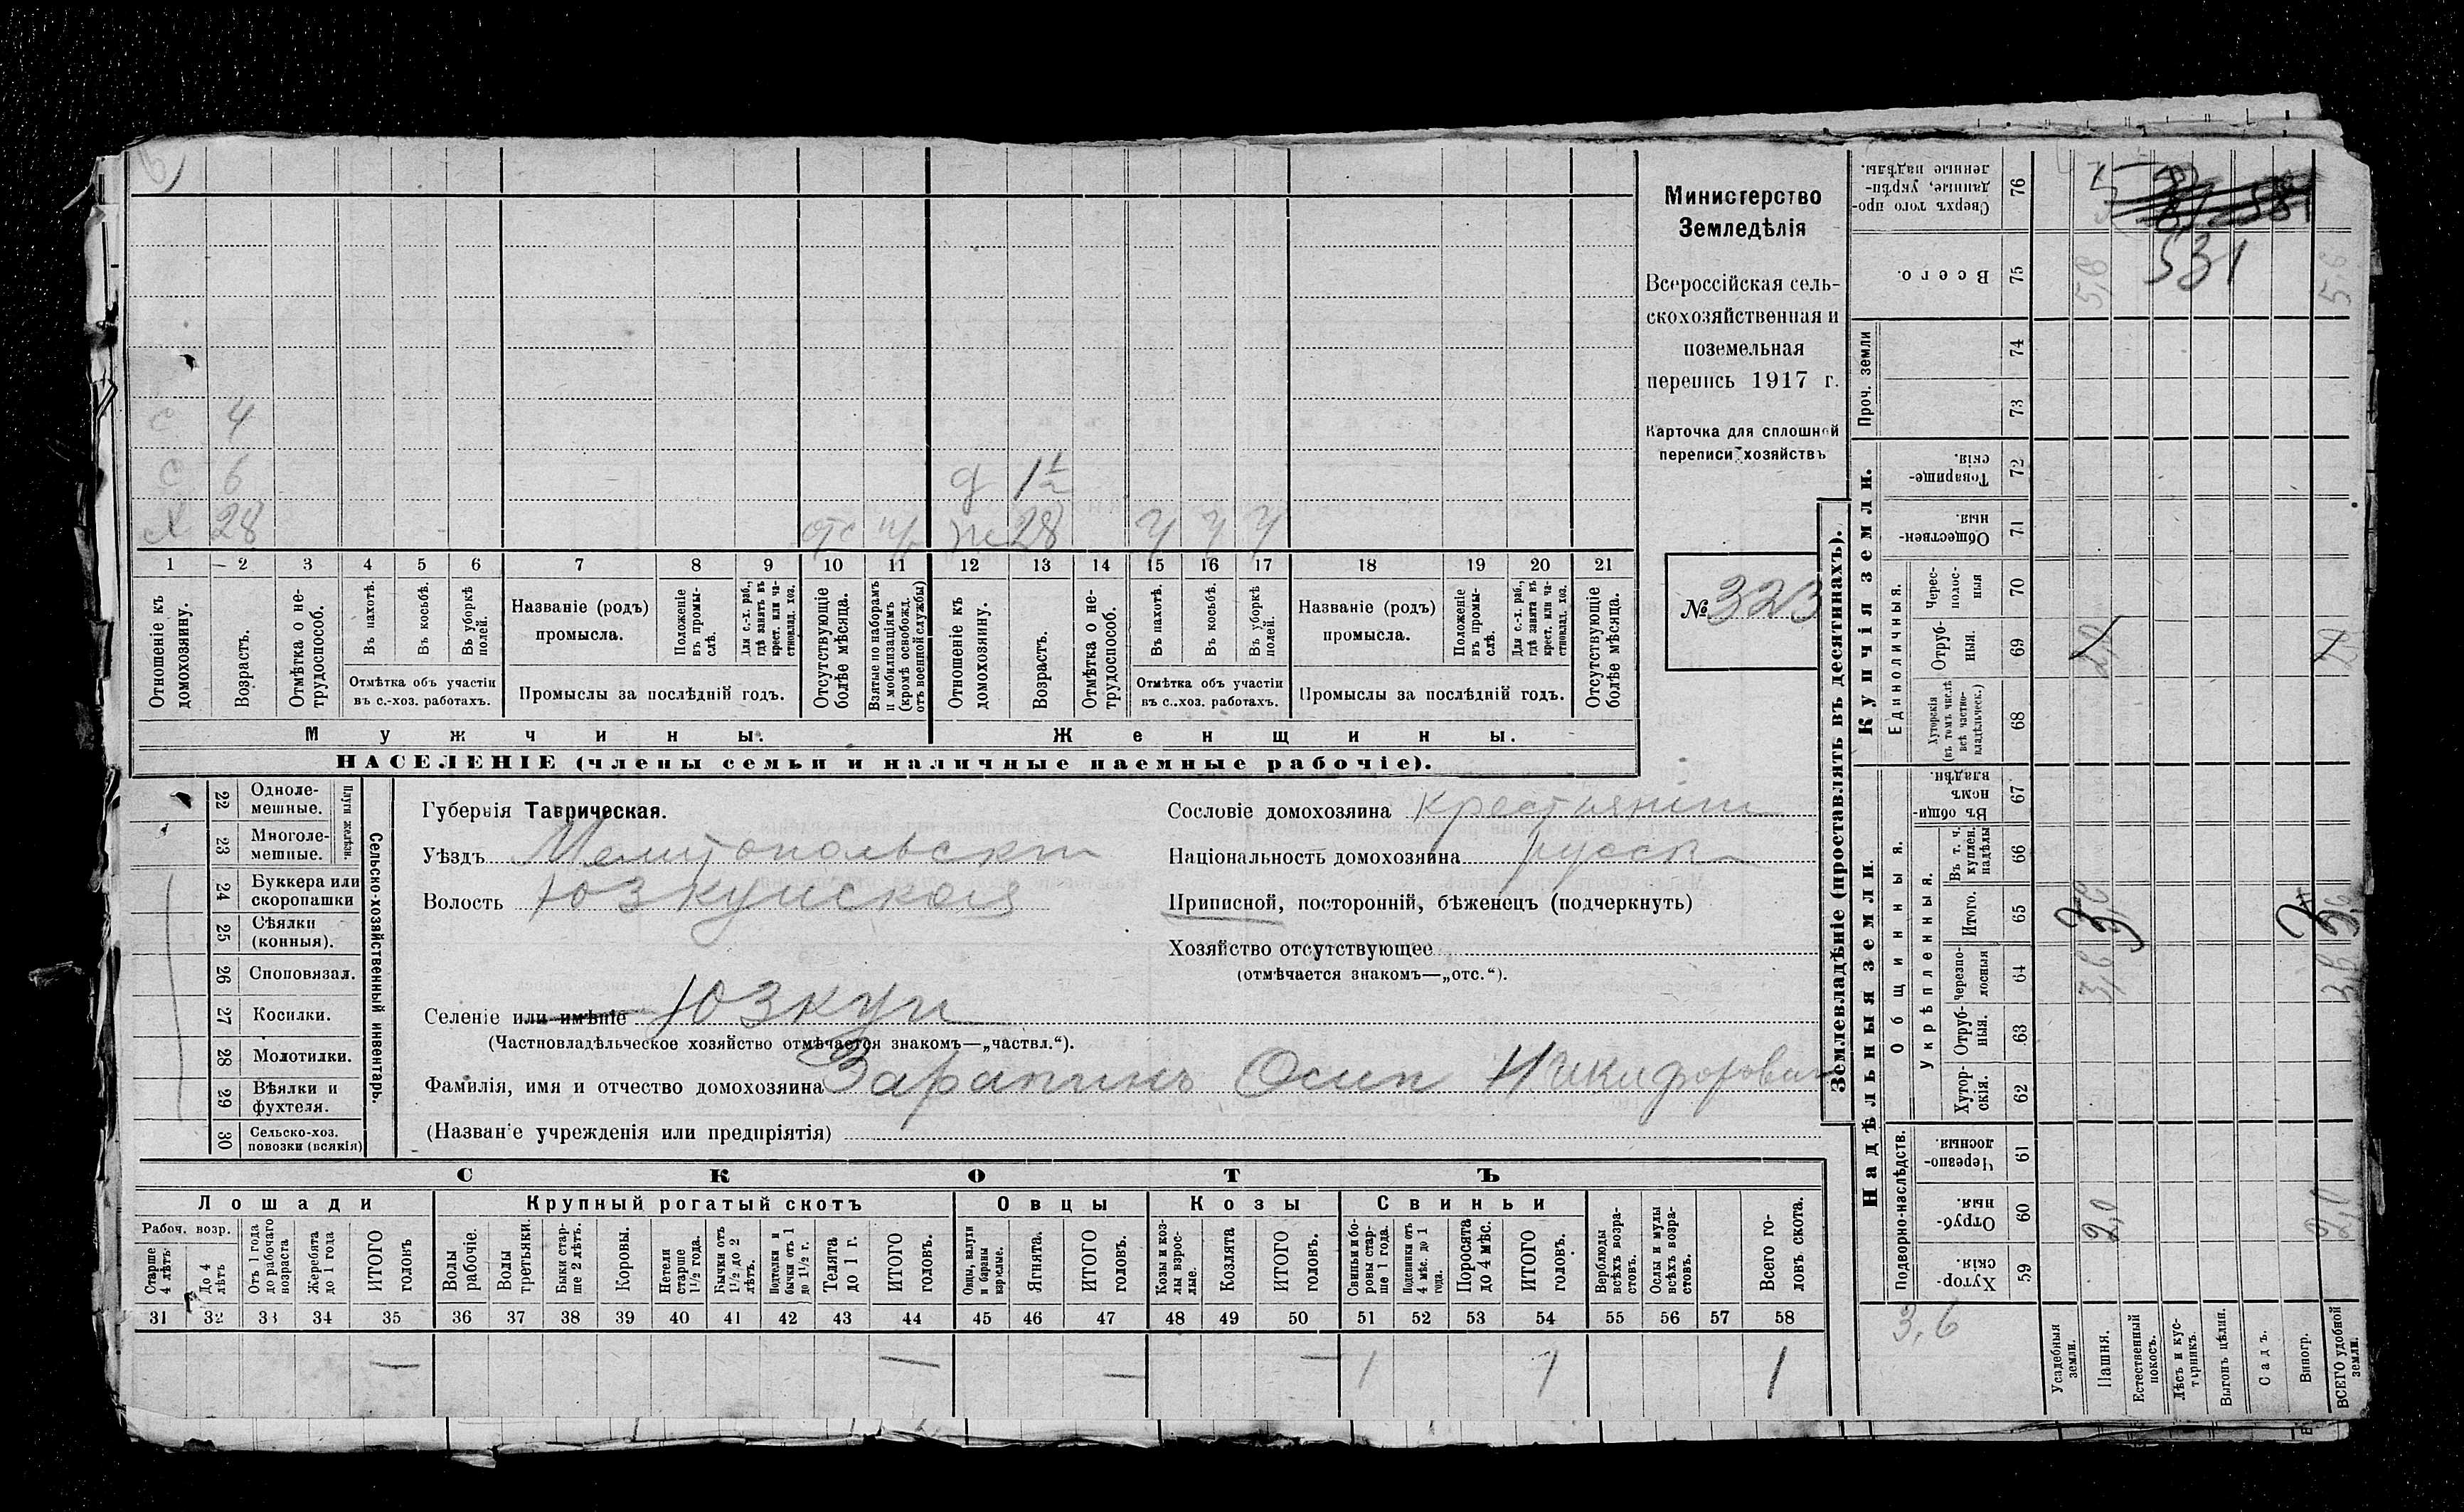 с 4
с 6 д 1½
х 28 отс ж 28 у у у
1 2 3 4 5 6 7 8 9 10 11 12 13 14 15 16 17 18 19 20 21
Отношеніе къ домохозяину.
Возрастъ.
Отмѣтка о нетрудоспособ.
Въ пахотѣ.
Въ косьбѣ.
Въ уборкѣ полей.
Отмѣтка объ участіи
въ с.-хоз. работахъ.
Названіе (родъ)
промысла.
Положеніе въ промыслѣ.
Для с.-х. раб., гдѣ занятъ въ крест. или частновлад. хоз.
Промыслы за послѣдній годъ.
Отсутствующіе болѣе мѣсяца.
Взятые по наборамъ и мобилизаціямъ (кромѣ освобожд. отъ военной службы)
Отношеніе къ домохозяину.
Возрастъ.
Отмѣтка о нетрудоспособ.
Въ пахотѣ.
Въ косьбѣ.
Въ уборкѣ полей.
Отмѣтка объ участіи
въ с..хоз. работахъ.
Названіе (родъ)
промысла.
Положеніе въ промыслѣ.
Для с.-х. раб., гдѣ занята въ крест. или частновлад. хоз.
Промыслы за послѣдній годъ.
Отсутствующіе болѣе мѣсяца.
Мужчины. Женщины.
НАСЕЛЕНІЕ (члены семьи и наличные наемные рабочіе).
Министерство
Земледѣлія
Всероссійская сель-
скохозяйственная и
поземельная
перепись 1917 г.
Карточка для сплошной
переписи хозяйствъ
№ 323
22 Однолемешные.
23 Многолемешные.
Плуги желѣзн.
24 Буккера или скоропашки
25 Сѣялки (конныя).
26 Сноповязал.
27 Косилки.
28 Молотилки.
29 Вѣялки и фухтеля.
30 Сельско-хоз. повозки (всякія)
Сельско-хозяйственный инвентарь.
Губернія Таврическая.
Уѣздъ Мелитопольскій
Волость Юзкуйская
Селеніе или имѣніе Юзкуи
(Частновладѣльческое хозяйство отмѣчается знакомъ—„частвл.“).
Фамилія, имя и отчество домохозяина Зарапинъ Осип Никифорович
(Названіе учрежденія или предпріятія)
Сословіе домохозяина крестьянин
Національность домохозяина русск
Приписной, посторонній, бѣженецъ (подчеркнуть)
Хозяйство отсутствующее
(отмѣчается знакомъ—„отс.“).
СКОТЪ
Лошади Крупный рогатый скотъ Овцы Козы Свиньи
Рабоч. возр.
Старше 4 лѣтъ
До 4 лѣтъ
Отъ 1 года до рабочаго возраста
Жеребята до 1 года
ИТОГО головъ
Волы рабочіе.
Волы третьяки.
Быки старше 2 лѣтъ.
Коровы.
Нетели старше 1½ года.
Бычки отъ 1½ до 2 лѣтъ.
Подтелки и бычки отъ 1 до 1½ г.
Телята до 1 г.
ИТОГО головъ.
Овцы, валухи и бараны взрослые.
Ягнята.
ИТОГО головъ.
Козы и козлы взрослые.
Козлята
ИТОГО головъ.
Свиньи и боровы старше 1 года.
Подсвинки отъ 4 мѣс. до 1 года.
Поросята до 4 мѣс.
ИТОГО головъ.
Верблюды всѣхъ возрастовъ.
Ослы и мулы всѣхъ возрастовъ.
Всего головъ скота.
31 32 33 34 35 36 37 38 39 40 41 42 43 44 45 46 47 48 49 50 51 52 53 54 55 56 57 58
— — — — 1 1 1
Землевладѣніе (проставлять въ десятинахъ).
Купчія земли.
Надѣльныя земли
Сверхъ того проданные, укрѣпленные надѣлы. 76
Всего. 75 5,6 531 5,6
Проч. земли 74 73
Товарищескія. 72
Общественныя. 71
Единоличныя.
Чересполосныя 70
Отрубныя. 69 2,0
Хуторскія (въ томъ числѣ всѣ частновладѣльческ.) 68
Общинныя.
Въ общинномъ владѣн. 67
Укрѣпленныя.
Въ т. ч. куплен. надѣлы 66
Итого. 65
Черезполосныя 64 3,6 3,6
Отрубныя. 63
Хуторскія. 62
Подворно-наслѣдств.
Черезполосныя 61
Отрубныя 60 2,0 2,0
Хуторскія 59
3,6
Усадебныя земли.
Пашня.
Естественный покосъ.
Лѣсъ и кустарникъ.
Выгонъ цѣлин.
Садъ.
Виногр.
ВСЕГО удобной земли.